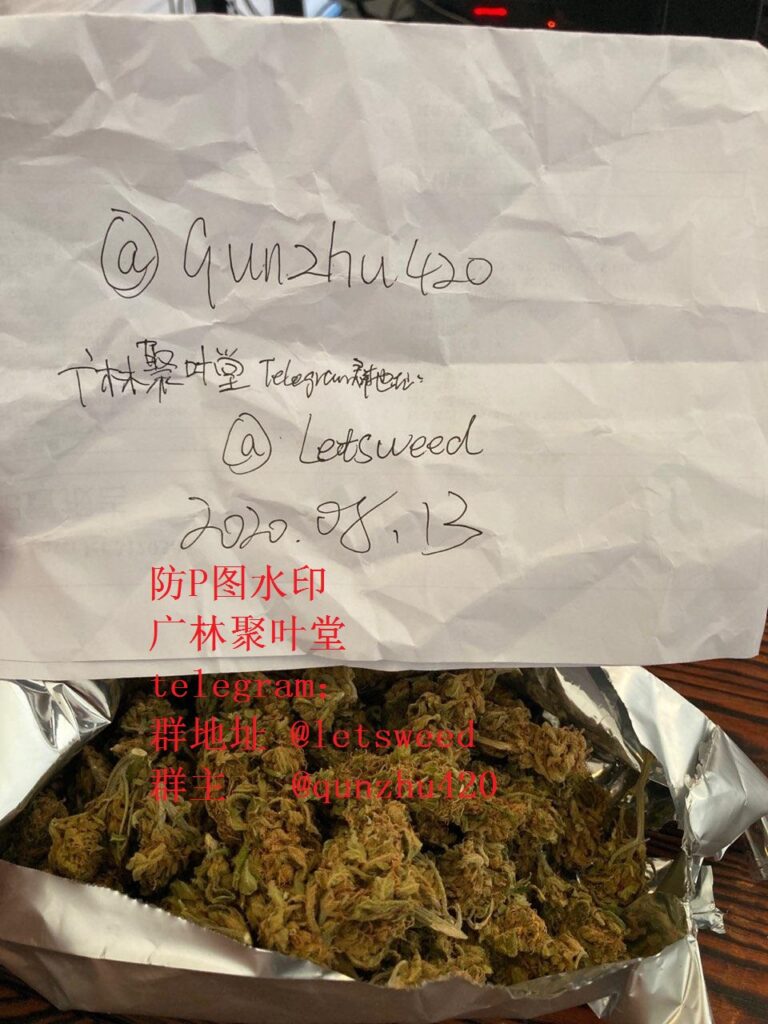 @ Qunzhu420
广林聚叶堂 Telegram群地址:
@ Letsweed
2020.08.13
防P图水印
广林聚叶堂
telegram:
群地址 @letsweed
群主 @qunzhu420